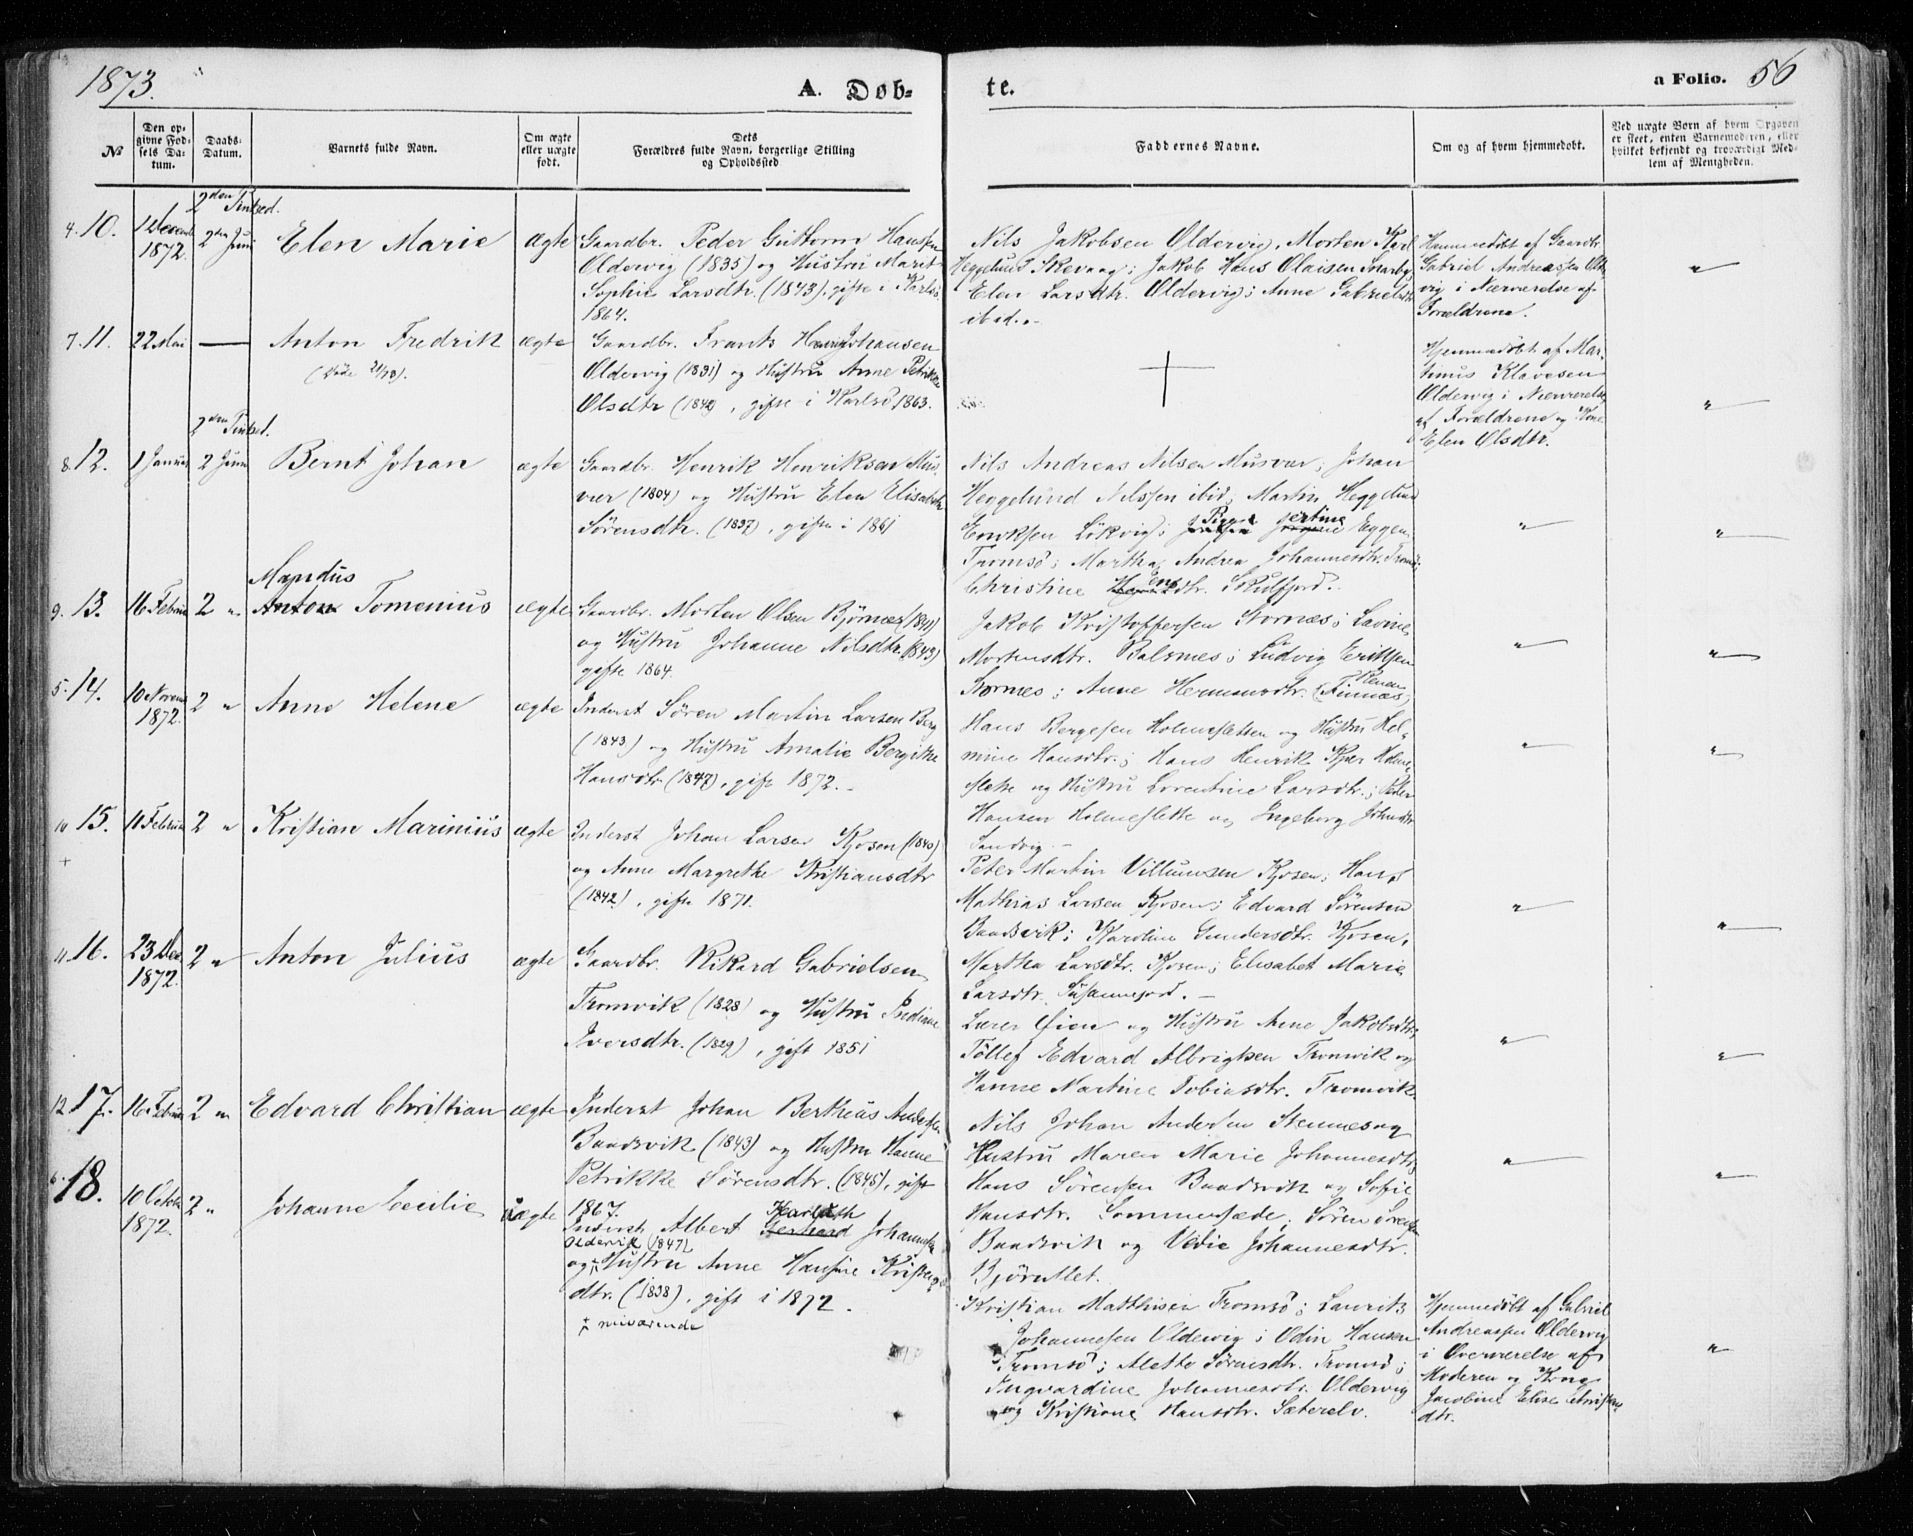 1873.
A. Døb-
te.
a Folio. 56
No
Den op-
givne Fød-
sels Da-
tum.
Daabs-
Datum.
Barnets fulde Navn.
Om ægte
eller uægte
født.
Dets
Forældres fulde Navn, borgerlige Stilling
og Opholdssted
Faddernes Navne.
Om og af hvem hjemmedøbt.
Ved uægte Born af hvem Opgaven
er skeet, enten Barnemoderen, eller
hvilket bekjendt og troværdigt Med-
lem af Menigheden.
4. 10.
1872.
2den Pintsed.
2den Juni
Elen Marie
ægte
Gaardbr. Peder Guttorm Hanssen
Oldervig (1835) og Hustru Marit
Sophie Larsdtr. (1843), gifte i Karlsø
1864.
Nils Jakobsen Oldervig, Morten Karl
Heggelund Skevaag; Jakob Hans Olaisen Snarby,
Elen Larsdtr. Oldervig; Anne Gabrielsdtr
ibid.
Hjemmedøbt af Gaardbr.
Gabriel Andreassen Older-
vig i Nærværelse af
Forældrene.
"
7. 11.
22 Mai
Anton Fredrik
(Døde
ægte
Gaardbr. Frants Johansen
Oldervig (1831) og Hustru Anne Petrikke
Olsdtr (1842), gifte i Karlsø 1863.
Hjemmedøbt af Mar-
tinus Klavesen
Oldervig i Nærværelse
af Forældrene og Kone
Elen Olsdtr.
"
8. 12.
1 Januar
2den Pintsed.
2 Juni
Bernt Johan
ægte
Gaardbr. Henrik Henriksen Mus-
vær (1804) og Hustru Elen Elisabeth
Sørensdtr. (1837), gifte i 1861
Nils Andreas Nilsen Musvær; Johan
Heggelund Nilssen ibid; Martin Heggelund
Eriksen Løkvig; Eggen
Tromsø; Martha Andrea Johannesdtr. Tromsø;
Christine Skulfjord.
"
"
9. 13.
16 Februar
2 "
Mandus
Anton Tomenius
ægte
Gaardbr. Morten Olsen Bjørnæs
og Hustru Johanne Nilsdtr. (1843)
gifte 1864.
Jakob Kristoffersen Stornæs; Lavine
Mortensdtr. Balsnes; Ludvig Eriksen
Stornes; Anne Hermansdtr. Finnæs,
"
"
5. 14.
10 Novem
1872.
2 "
Anne Helene
ægte
Inderst Søren Martin Larsen Berg
(1843) og Hustru Amalie Bergitte
Hansdtr. (1847), gift 1872.
Hans Bergesen Holmesletten og Hustru Hel-
mine Hansdtr.; Hans Henrik Holme-
slette og Hustru Lorentine Larsdtr.; Peder
Hansen Holmeslette og Ingeborg Johnsdtr
Sandvig.
"
"
10 15.
11 Februar
2 "
Kristian Marinius
ægte
Inderst Johan Larsen Kjosen (1840)
og Anne Margrethe Kristiansdtr
(1842), gifte 1871.
Peter Martin Villumsen Kjosen; Hans
Mathias Larsen Kjosen; Edvard Sørensen
Baadsvik; Karoline Gundersdtr. Kjosen,
Martha Larsdtr. Kjosen; Elisabet Marie
Larsdtr.
"
"
+
11. 16.
23 Dec
1872.
2 "
Anton Julius
ægte
Gaardbr. Rikard Gabrielsen
Tromvik (1828) og Hustru
Iversdtr. (1829), gift 1851
Lærer Øien og Hustru Anne Jakobsdtr;
Tollef Edvard Albrigtsen Tromvik og
Hanne Martine Tobiasdtr. Tromvik.
"
"
12 17.
16 Februar
2 "
Edvard Christian
ægte
Inderst Johan Bertheus Andersen
Baadsvik (1843) og Hustru Hanne
Petrikke Sørensdtr. (1845), gift
1867.
Nils Johan Andersen Stennes og
Hustru Maren Marie Johannesdtr;
Hans Sørensen Baadsvik og Sofie
Hansdtr. Sommersæde; Søren Sørensen
Baadsvik og Vedie Johannesdtr.
"
"
6. 18.
10 Octobr
1872.
2 "
Johanne Cecilie
uægte
Inderst Albert Gerhard Johannesen
Oldervik (1847)
og Hustru Anne Hansine
dtr. (1838), gift i 1872.
nuværende
Kristian Matthisen Tromsø; Laurits
Johannesen Oldervig; Odin Hansen
Tromsø; Alette Sørensdtr. Tromsø;
Ingvardine Johannesdtr. Oldervig
og Kristiane Hansdtr. Sæterelv.
Hjemmedøbt af Gabriel
Andreassen Oldervig
i Overværelse af
Moderen og Kone
Jacobine Elise
dtr.
"